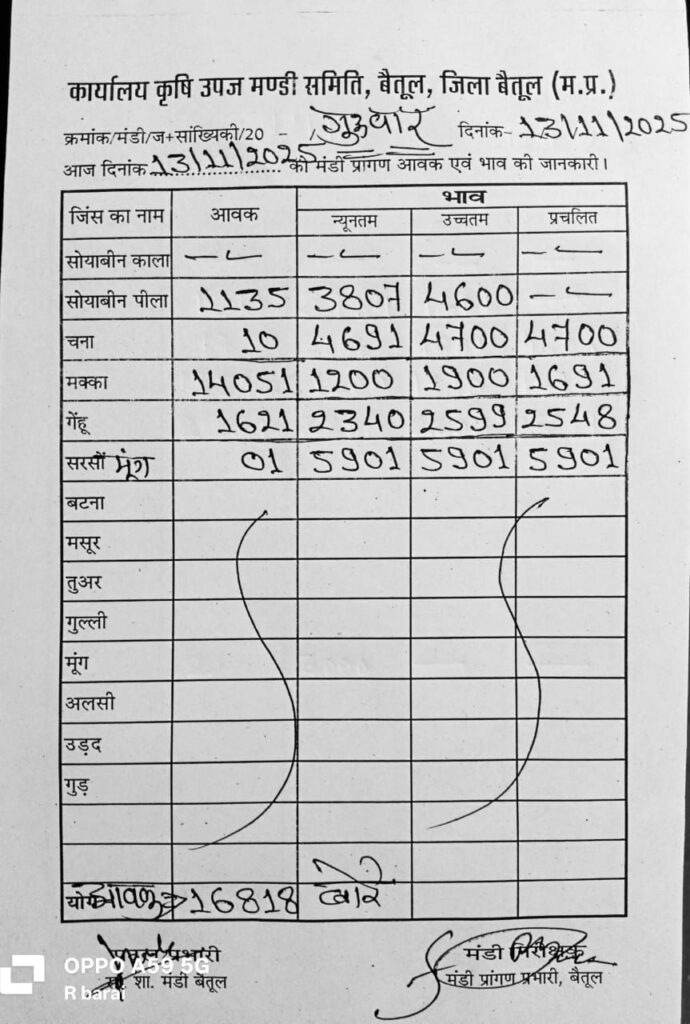 कार्यालय कृषि उपज मण्डी समिति, बैतूल, जिला बैतूल (म.प्र.)
क्रमांक/मंडी/ज+सांख्यिकी/20 - गुरुवार दिनांक- 13/11/2025
आज दिनांक 13/11/2025 को मंडी प्रांगण आवक एवं भाव की जानकारी।
जिंस का नाम आवक भाव
न्यूनतम उच्चतम प्रचलित
सोयाबीन काला -- -- -- --
सोयाबीन पीला 1135 3807 4600 --
चना 10 4691 4700 4700
मक्का 14051 1200 1900 1691
गेंहू 1621 2340 2599 2548
सरसौं मूंग 01 5901 5901 5901
बटना
मसूर
तुअर
गुल्ली
मूंग
अलसी
उड़द
गुड़
योग आवक 16818 बोरे
प्रभारी मंडी निरीक्षक
शा. मंडी बैतूल मंडी प्रांगण प्रभारी, बैतूल
OPPO A59 5G
R barai